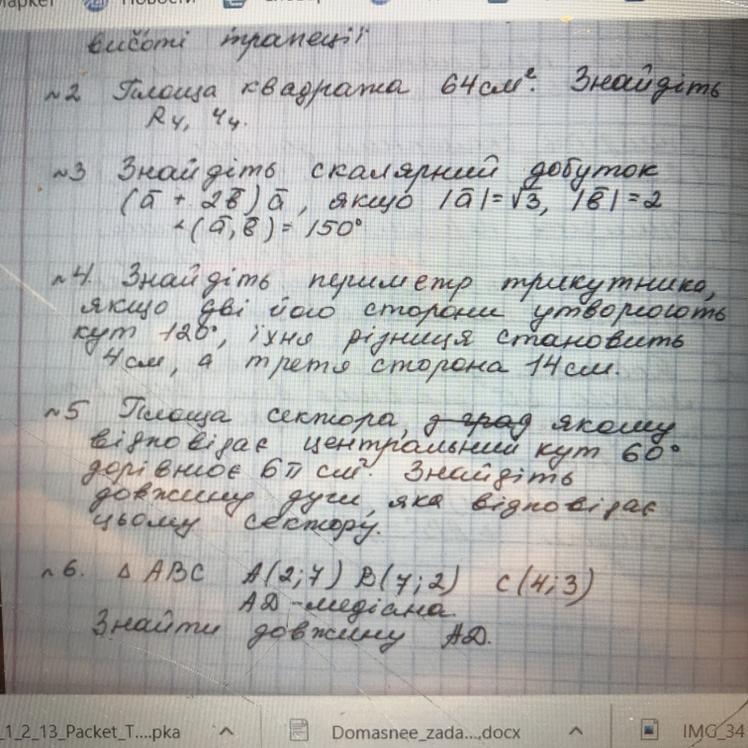 висоті трапеції
№2 Площа квадрата 64 см². Знайдіть
R₄, ч₄.
№3 Знайдіть скалярний добуток
(ā + 2b̄)ā, якщо |ā|=√3, |b̄|=2
∠(ā,b̄)=150°
№4. Знайдіть периметр трикутника,
якщо дві його сторони утворюють
кут 120°, їхня різниця становить
4см, а третя сторона 14см.
№5 Площа сектора, якому
відповідає центральний кут 60°
дорівнює 6π см². Знайдіть
довжину дуги, яка відповідає
цьому сектору.
№6. △ABC A(2;7) B(7;2) C(4;3)
AD-медіана.
Знайти довжину AD.
_1_2_13_Packet_T....pka
Domasnee_zada...,docx
IMG_34